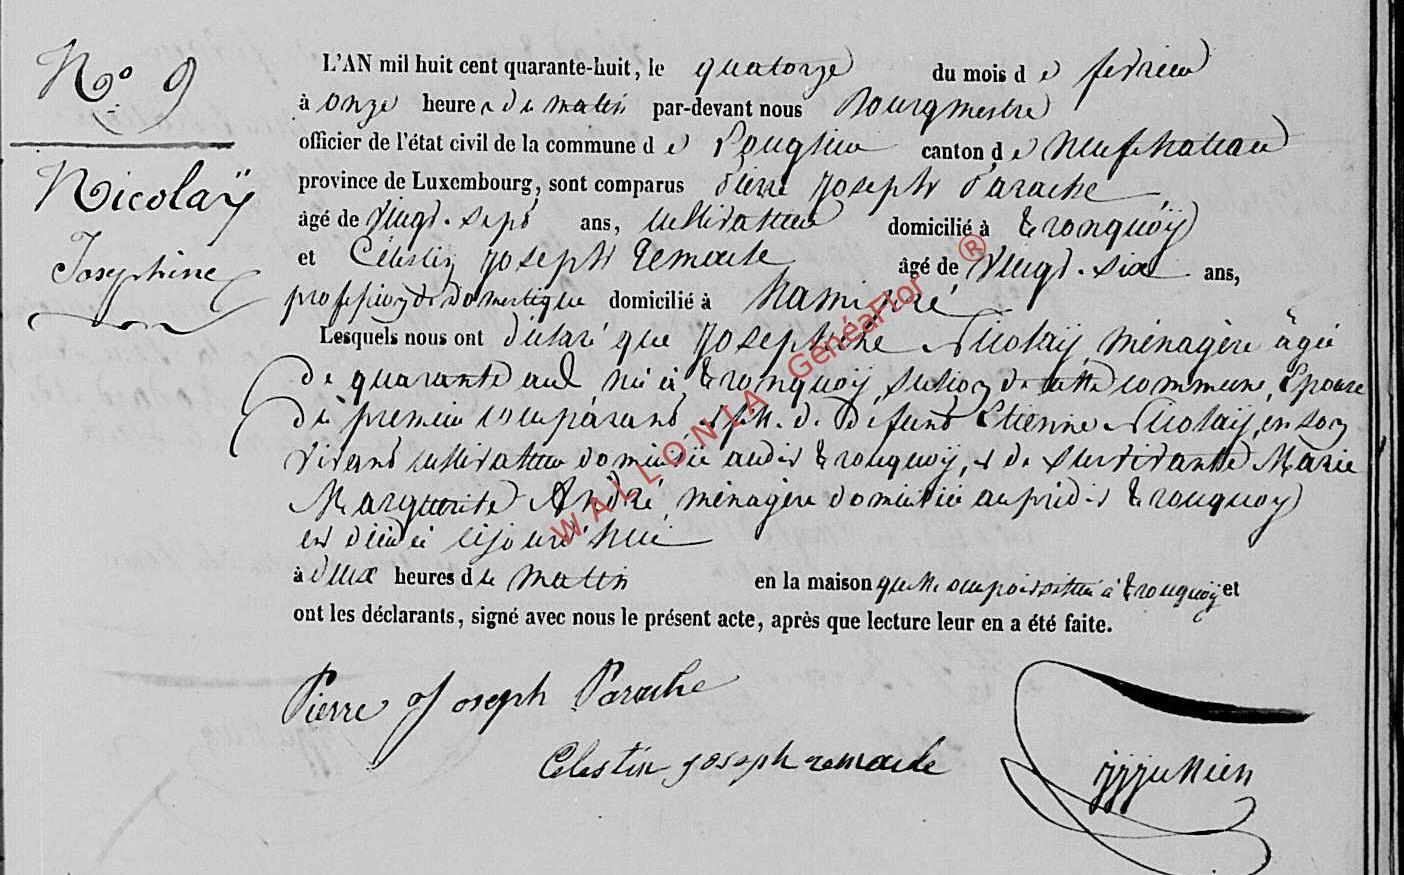 N° 9
Nicolaÿ
Josephine
L'AN mil huit cent quarante-huit, le quatorze du mois de fevrier
à onze heures du matin par-devant nous Bourgmestre
officier de l'état civil de la commune de Longlier canton de Neufchateau
province de Luxembourg, sont comparus Pierre Joseph Parache
âgé de vingt-sept ans, cultivateur domicilié à Tronquoÿ
et Célestin Joseph Remacle âgé de vingt-six ans,
profession de domestique domicilié à Namoussart
Lesquels nous ont déclaré que Josephine Nicolaÿ, ménagère âgée
de quarante ans née à Tronquoÿ, section de cette commune, Epouse
du premier comparant, fille de Défunt Etienne Nicolaÿ, en son
vivant cultivateur domicilié audit Tronquoÿ, et de survivante Marie
Marguerite André, ménagère domiciliée au prédit Tronquoy
est décédée cejourd'hui
à deux heures du matin en la maison qu'elle occupoit située à Tronquoÿ et
ont les déclarants, signé avec nous le présent acte, après que lecture leur en a été faite.
Pierre Joseph Parache
Celestin Joseph remacle
WALLONIA GénéaFlor ®